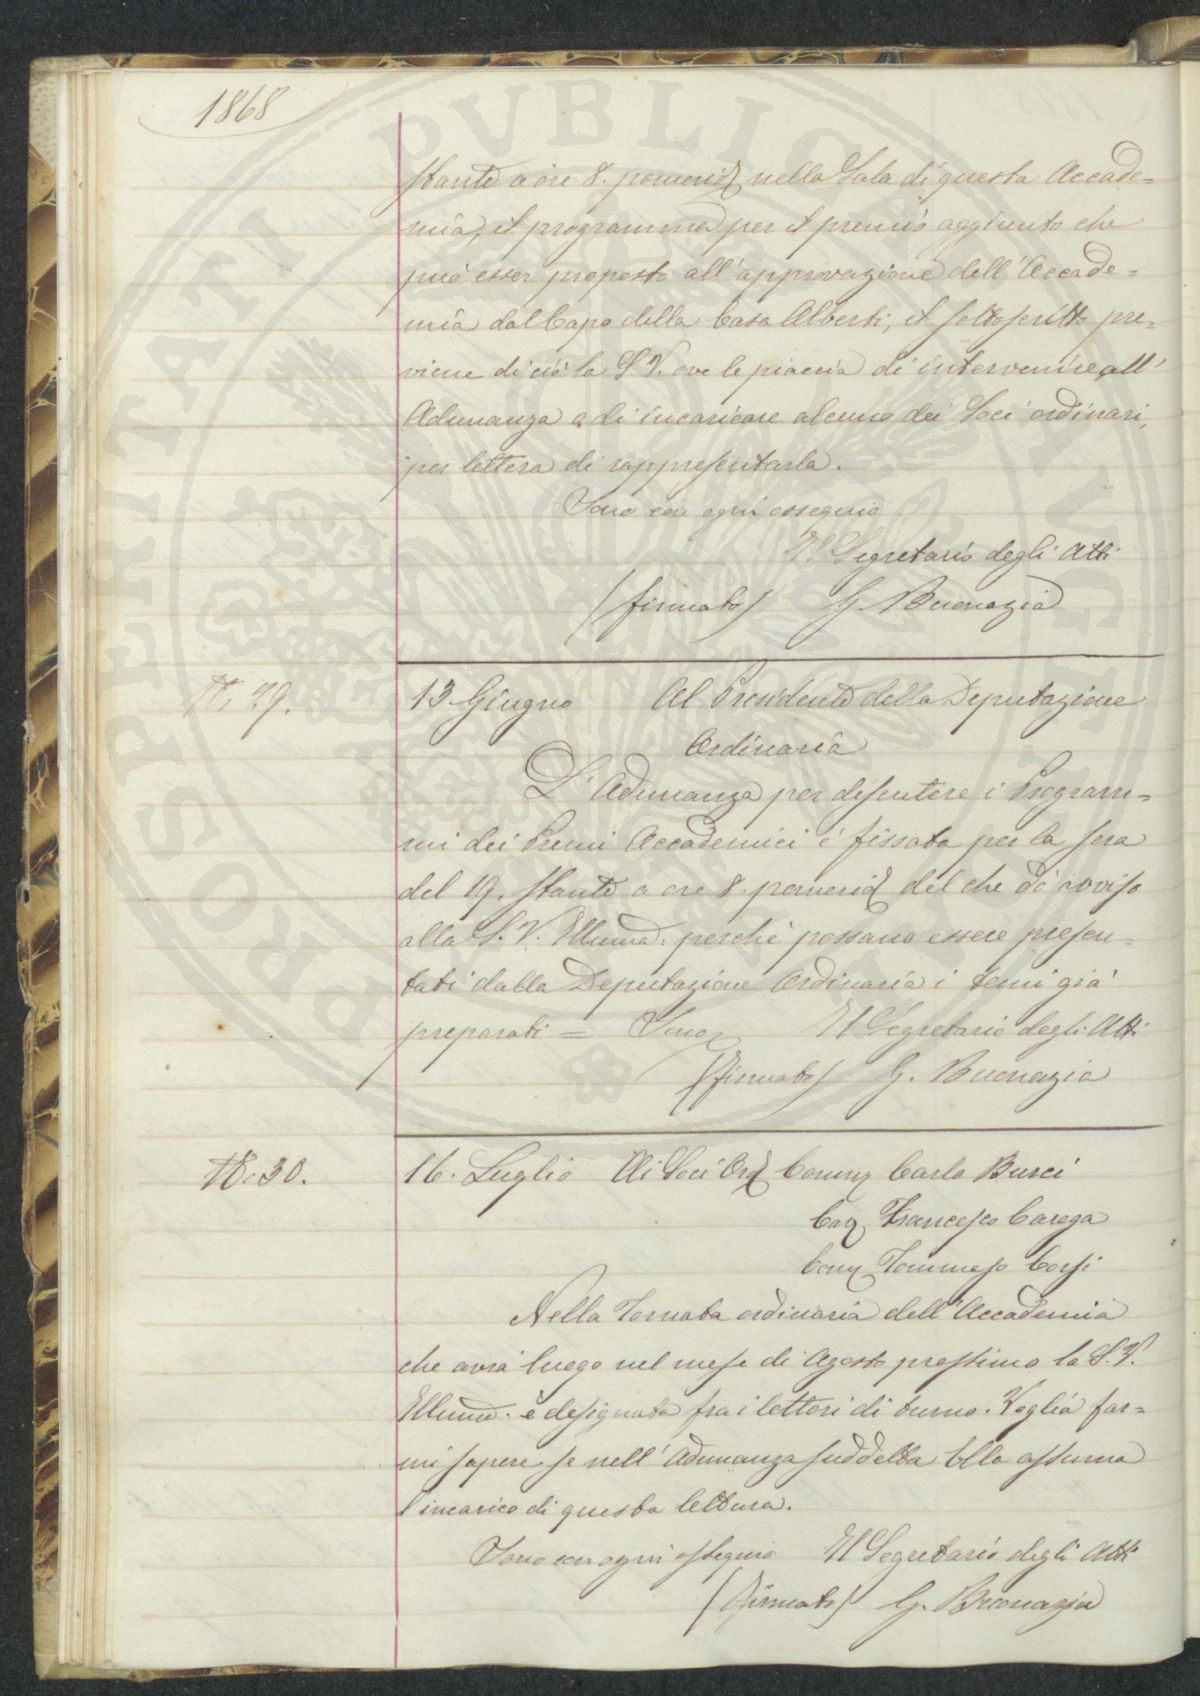 1868
stante a ore 8. pomerid nella Sala di questa Accade=
mia, il programma per il premio aggiunto che
può esser proposto all'approvazione dell'Accade=
mia dal Capo della Casa Alberti, il sottoscritto pre=
viene di ciò la S. V. ove le piaccia di intervenire all'
Adunanza o di incaricare alcuno dei Soci ordinari,
per lettera di rappresentarla.
Sono con ogni ossequio
Il Segretario degli Atti
(firmato) G. Buonazia
N. 29. 13 Giugno Al Presidente della Deputazione
Ordinaria
L'Adunanza per discutere i Program=
mi dei Premi Accademici è fissata per la sera
del 19. stante a ore 8. pomerid del che dò avviso
alla S. V. Illuma: perchè possano essere presen=
tati dalla Deputazione Ordinaria i temi già
preparati = Sono Il Segretario degli Atti
(firmato) G. Buonazia
N. 30. 16. Luglio Ai Soci Ord Comm Carlo Burci
Cav Francesco Carega
Comm Tommaso Corsi
Nella Tornata ordinaria dell'Accademia
che avrà luogo nel mese di Agosto prossimo la S. V.
Illuma. è designata fra i lettori di turno. Voglia far=
mi sapere se nell'Adunanza suddetta Ella assuma
l'incarico di questa lettura.
Sono con ogni ossequio Il Segretario degli Atti
(firmato) G. Buonazia
PROSPERITATI PUBLICAE